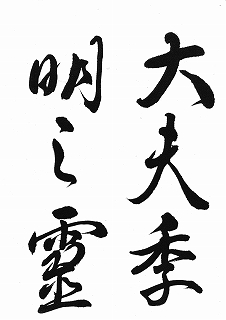 大夫季
明之靈